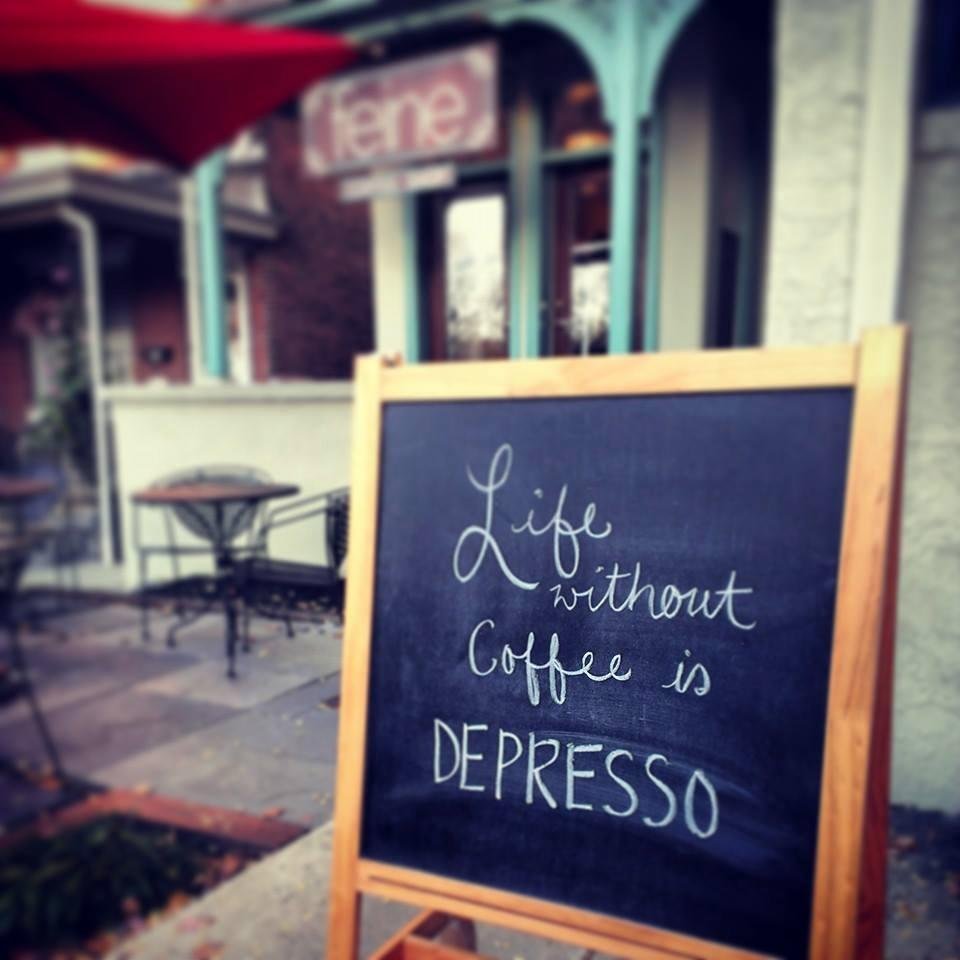 feine
Life
without
Coffee is
DEPRESSO